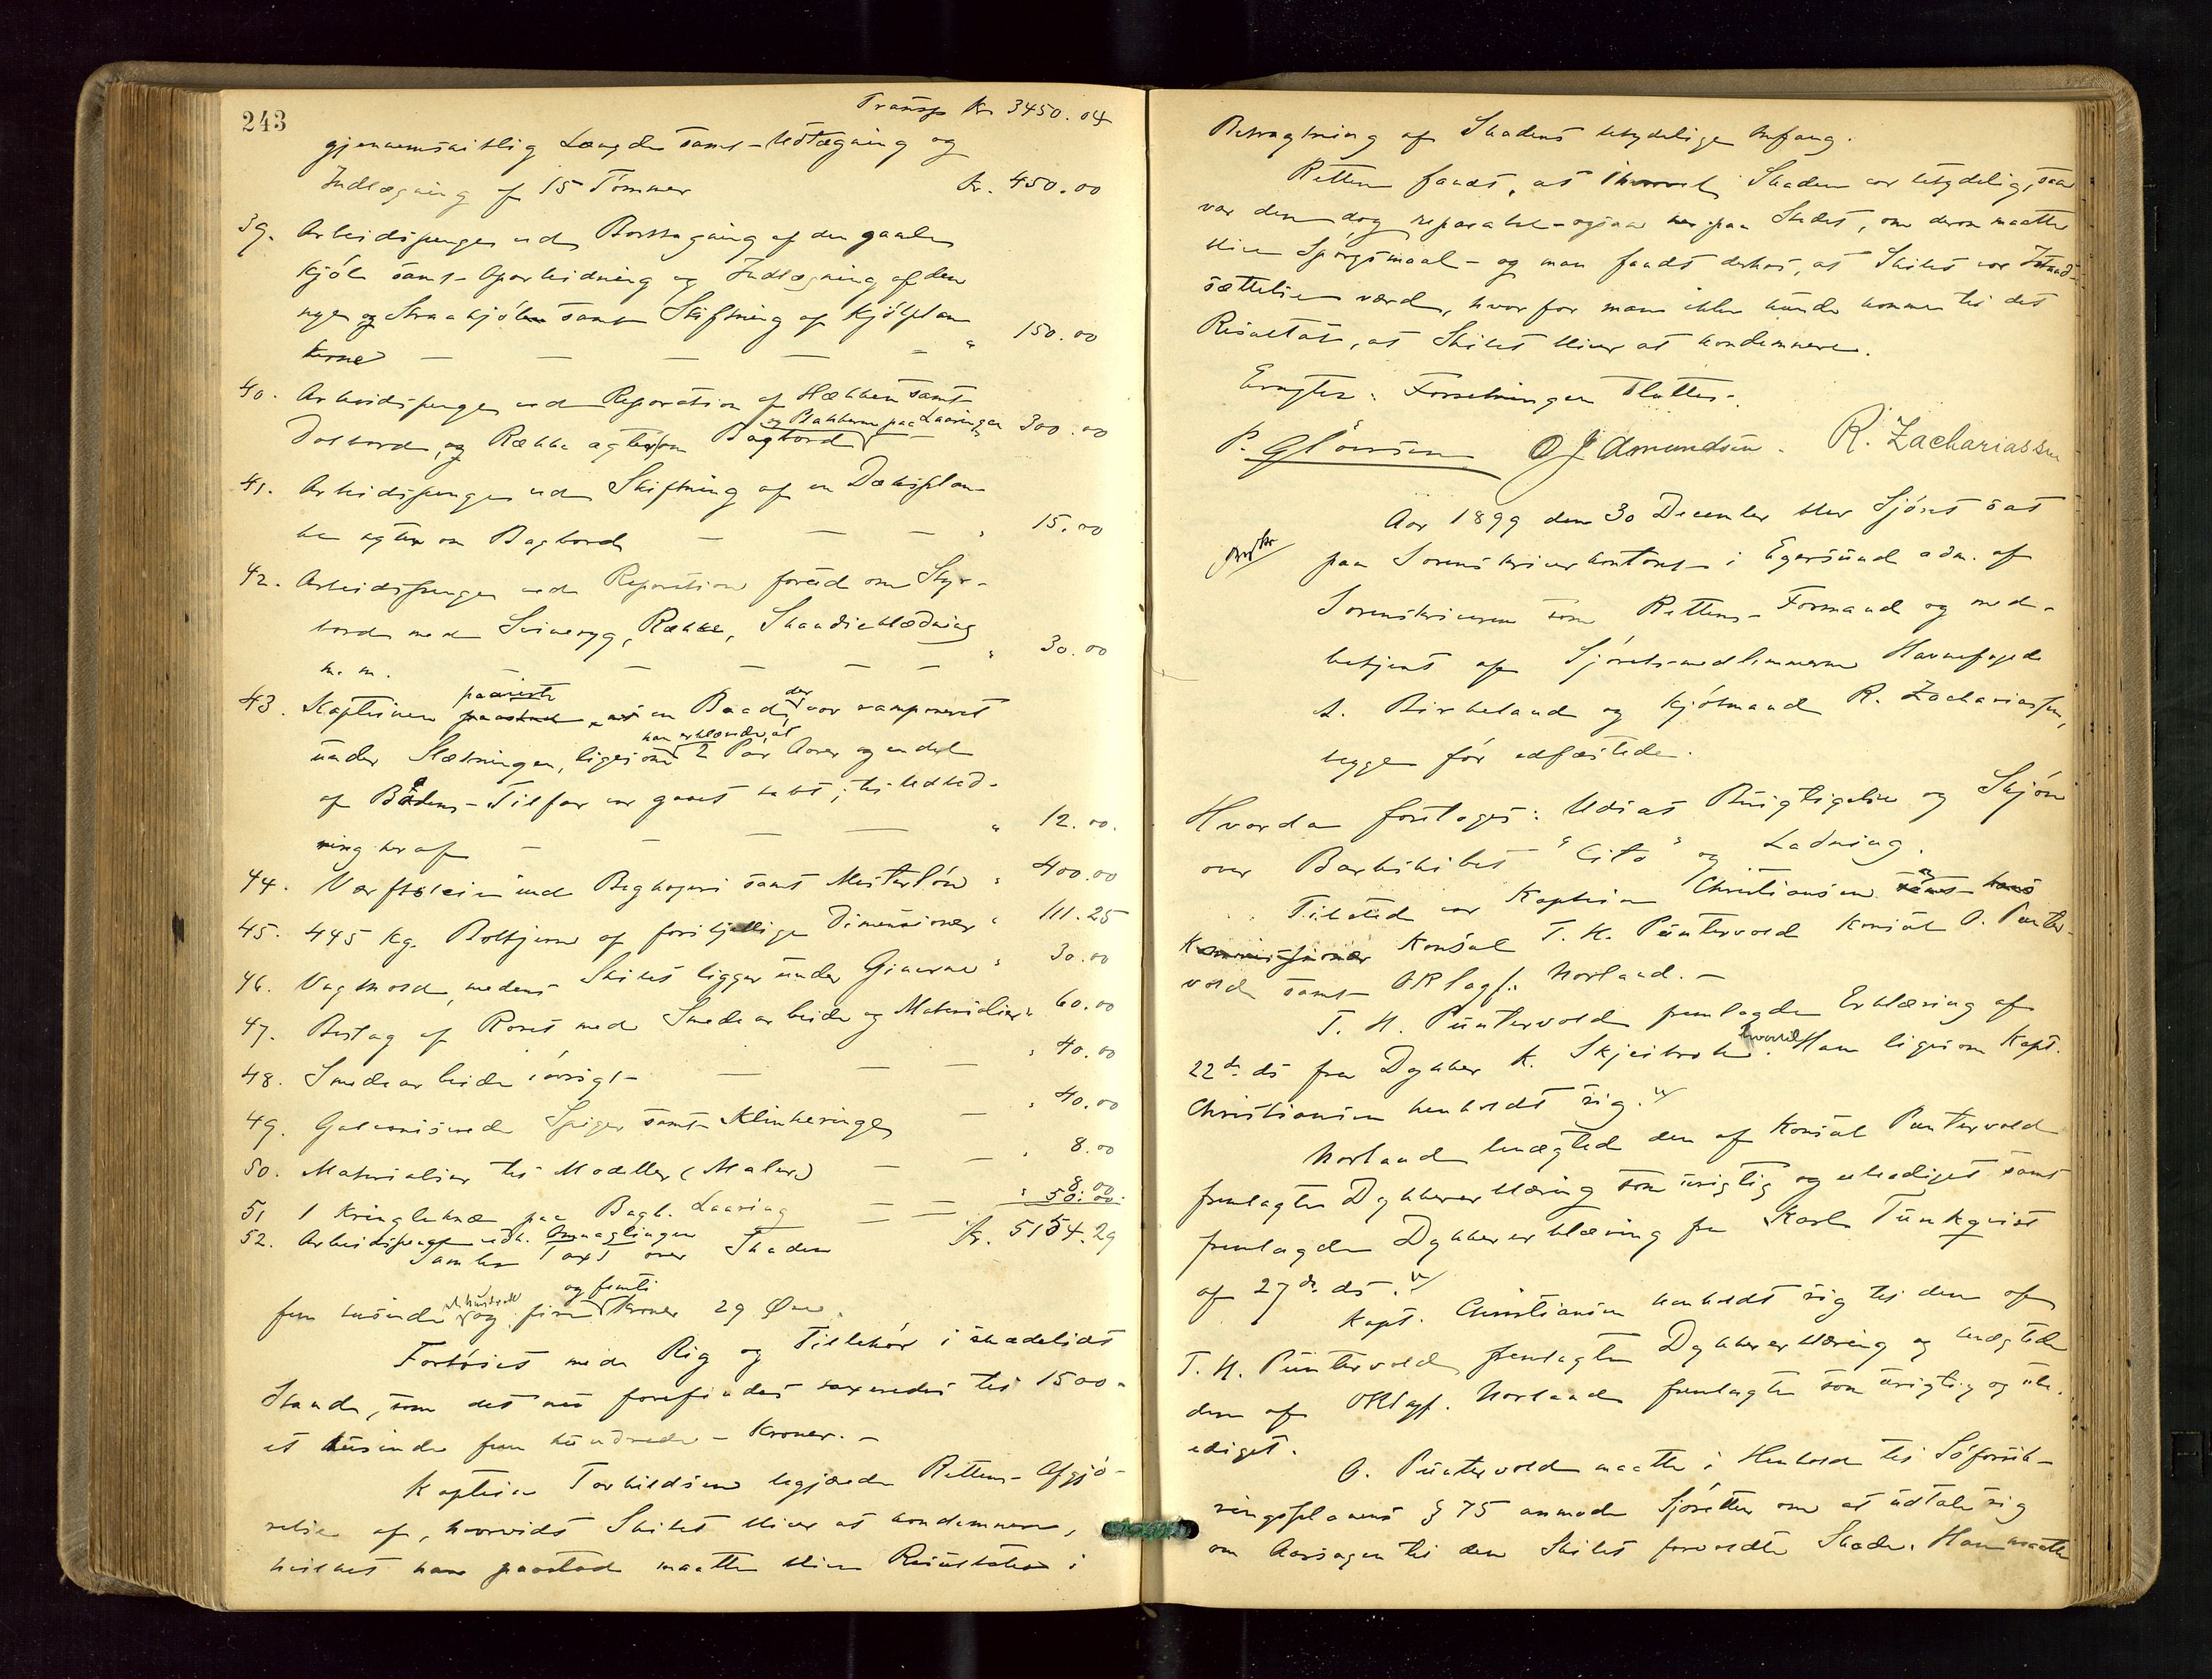 243
Transp Kr. 3450.04
gjennemsnitlig Længde samt Udtagning og
Indlægning af 15 Tømmer Kr. 450.00
39. Arbeidspenge ved Borttagning af den gamle
Kjøl samt Oparbeidning og Indlægning af den
nye og Straakjølen samt Skiftning af Kjølplan-
kerne — — — — " 150.00
40. Arbeidspenge ved Reparation af Hækken samt
Dolbord, og Række agter om Bagbord og Bakkerne paa Laaringen 300.00
41. Arbeidspenge ved Skiftning af en Dæksplan-
ke agter om Bagbord — — — " 15.00
42. Arbeidspenge ved Reparation forud om Styr-
bord med Svineryg, Række, Skandseklædning
m. m. — — — — " 30.00
43. Kapteinen paaviste en Baad, der var ramponeret
under Slæbningen, ligesom han erklærede, at 2 Par Aarer og en del
af Baadens Tilfar var gaaet tabt; til Udbed-
ring heraf — — — " 12.00.
44. Værftsleie ved Baghageri samt Mesterløn " 400.00
45. 445 Kg. Boltjern af forskjellige Dimensioner " 111.25
46. Vaghold, medens Skibet ligger under Gjørene " 30.00
47. Beslag af Roret med Smedearbeide og Materialier " 60.00
48. Smedearbeide iøvrigt — — — " 40.00
49. Galvaniserede Spiger samt Klinkeringe — " 40.00
50. Materialier til Modeller (Maler) — — " 8.00
51 1 Kringleknæ paa Bagb. Laaring — — 8.00
52. Arbeidspenge ved Omnaglingen " 50.00.
Samlet Taxt over Skaden Kr. 5154.29
fem tusinde et hundrede og fire og femti Kroner 29 Øre.
Fartøiet med Rig og Tilbehør i skadelidt
Stand, som det nu forefindes taxeredes til 1500.
et tusinde fem hundrede Kroner. —
Kaptein Torkildsen begjærede Rettens Afgjø-
relse af, hvorvidt Skibet bliver at kondemnere,
hvilket han paastod maatte blive Resultatet i
Betragtning af Skadens betydelige Omfang.
Retten fandt, at ihvorvel Skaden var betydelig, saa
var den dog reparabel – ogsaa her paa Stedet, om derom maatte
blive Spørgsmaal – og man fandt derhos, at Skibet var Istand-
sættelse værd, hvorfor man ikke kunde komme til det
Resultat, at Skibet bliver at kondemnere.
Forretningen sluttet.
O J Amundsen. R. Zachariassen
Aar 1899 den 30 December blev Sjøret sat
paa Sorenskriverkontoret i Egersund adm. af
Sorenskriveren som Rettens Formand og med-
betjent af Sjøretsmedlemmerne Havnefoged
A. Birkeland og Kjøbmand R. Zachariassen,
begge før edfæstede.
Hvorda foretoges: Udsat Besigtigelse og Skjøn
over Barkskibet "Cito" og Ladning.
Tilstede var Kaptein Christiansen og
Konsul T. H. Püntervold Konsul O. Punter-
vold samt ORsagf. Norland. —
T. H. Püntervold fremlagde Erklæring af
22de ds fra Dykker K. Skjeibrok hvortil Han ligesom Kapt.
Christiansen henholdt sig.
Norland benægted den af Konsul Puntervold
fremlagte Dykkererklæring som urigtig og ubeediget samt
fremlagde Dykkererklæring fra Karl Tunkqvist
af 27de ds.
Kapt. Christiansen henholdt sig til den af
T. H. Püntervold fremlagte Dykkererklæring og benægtede
den af ORsagf. Norland fremlagte som urigtig og ube-
ediget.
O. Püntervold maatte i Henhold til Søforsik-
ringsplanens § 75 anmode Sjøretten om at udtale sig
om Aarsagen til den Skibet forvoldte Skade. Han maatte